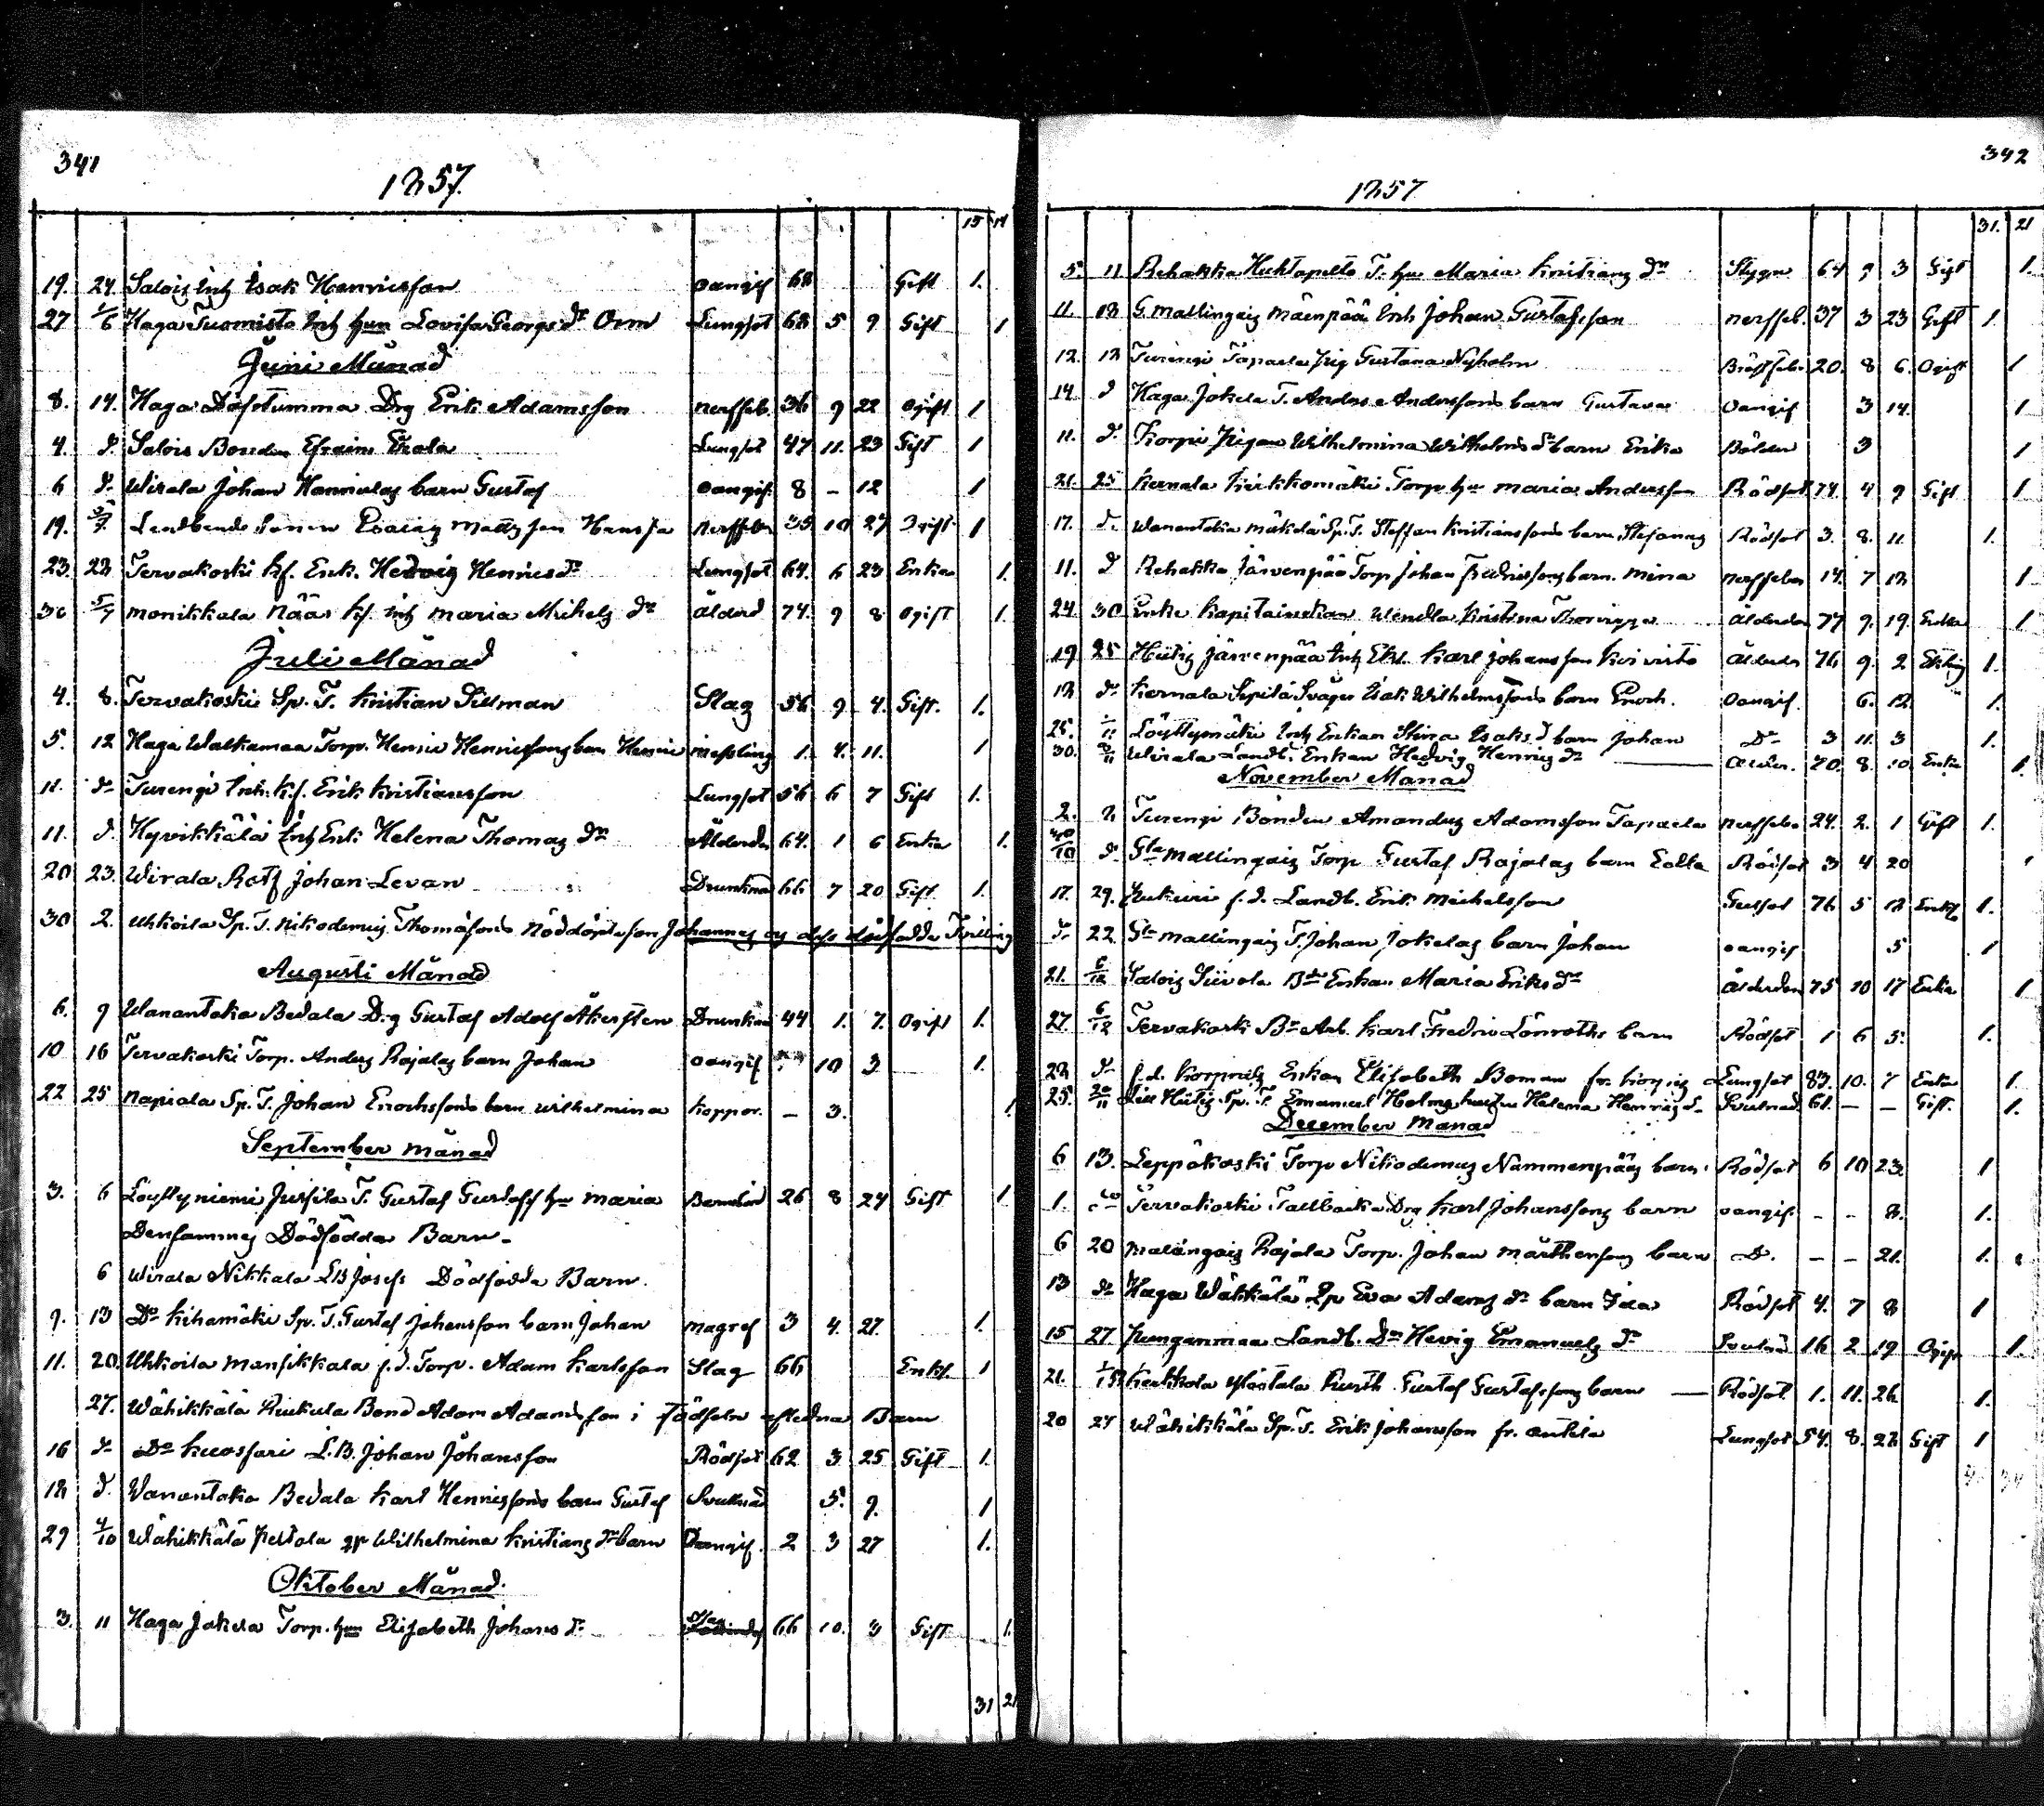 341
1857.
15 17
19. 24. Salois Inh Isak Henricsson oangif 68 Gift 1.
27 1/6 Haga Tuomisto Inh hun Lovisa Georgs dr Orn Lungsot 68 5 9 Gift 1
Juni Månad
8. 14. Haga Döfstumma Drg Erik Adamsson nerffeb. 36 9 22 ogift 1
4. d. Salois Bonden Efraim Lungsot 47 11. 23 Gift 1
6 d. Wirala Johan Hannulas barn Gustaf oangif. 8 - 12 1
19. 5/7 Landbonde Sonen Esaias Mattsson nerffeber 35 10 27 Ogift 1
23. 28 Tervakoski Kf. Enk. Hedvig Henrics dr Lungsot 64. 6 23 Enka 1.
30 5/7 monikkala Nääs Kf. inh maria Mickels dr Ålderd 74. 9 8 Ogift 1.
Juli Månad
4. 8. Tervakoski Sp. T. Kristian Sillman Slag 56 9 4. Gift. 1.
5. 12 Haga Walkamaa Torp. Henric Henricssons barn Henric messling 1. 4. 11. 1
11. do Turengi Inh. Kf. Erik Kristiansson Lungsot 56 6 7 Gift 1.
11. d. Hyvikkälä Inh Enk. Helena Thomas dr Ålderdo 64. 1 6 Enka 1.
20 23. Wirala Rotf Johan Levan Drunknad 66 7 20 Gift 1.
30 2. Uhkoila Sp. T. Nikodemus Thomassons nöddöpte son Johannes og dess dödfödda Tvilling
Augusti Månad
6. 9 Wanantaka Bedala Drg Gustaf Adolf Åkersten Drunknad 44 1. 7. Ogift 1.
10 16 Tervakoski Torp. Anders Rajalas barn Johan oangif 10 3 1.
22 25 Napiala Sp. T. Johan Enochssons barn Wilhelmina koppor. - 3. 1
September månad
3. 6 Löyttyniemi Jussila T. Gustaf Gustafss hu maria Barnsbörd 26 8 24 Gift 1.
Densammes Dödfödda Barn.
6 Wirala Nikkala LB Josefs Dödfödda Barn.
9. 13 Do Kihamäki Sp. T. Gustaf Johansson barn Johan magref 3 4. 27. 1.
11. 20. Uhkoila Mansikkala f.d. Torp. Adam Karlsson Slag 66 Enkl. 1
27. Wähikkälä Bond Adam Adamsson i födseln afledna Barn
16 do Do L.B. Johan Johansson Rödsot 62 3 25 Gift 1.
18 d. Wanantaka Bedala Karl Henricssons barn Gustaf Svullnad 5. 9. 1
29 4/10 Wähikkälä Peltola qp Wilhelmina Kristians dr barn Oangif. 2 3 27 1.
Oktober Månad.
3. 11 Haga Jokela Torp. hun Elisabeth Johans dr Slag 66 10. 3 Gift 1.
31 21
342
1857
31. 21
5. 11 Rehakka Huhtapelto T. hu Maria Kristians dr Stygn 64 9 3 Gift 1.
11. 18 G. Mallingais Mäenpää Inh Johan Gustafsson nerffeb. 37 3 23 Gift 1.
12. 18 Turengi Tapaela Pig Gustava Nyholm Bröstfeb. 20. 8 6. Ogift 1
14. d Haga Jokela T. Anders Anderssons barn Gustava oangif 3 14. 1
11. d. Korpi Pigan Wilhelmina Wilhelms dr barn Erika Bölder 3 1
21. 25 Kernala Kirkkomäki Torp. hu Maria Andersson Rödsot 74. 4 9 Gift 1
17. d. Wanantaka Mäkelä Sp. T. Steffan Kristianssons barn Stefanus Rödsot 3. 8. 11 1.
11. d Rehakka Järvenpää Torp Johan Fredricssons barn. Mina nerffeber 14. 7 18 1
24. 30 Enke Kapitainskan Wendla Kristina Ålderdo 77 9. 19. Enka 1
19 25 Hiitis Järvenpää Inh Ekl. Karl Johansson Koivisto Ålderdo 76 9. 2 Enkling 1.
18 do Kernala Seppälä Sväger Isak Wilhelmssons barn Enoch. oangif. 6. 12. 1.
25. 1/11 Löyttymäki Inh Enkan Stina Isaks d barn Johan Do 3 11. 3 1.
30. 8/11 Wirala Landb. Enkan Hedvig Henrics dr Ålder. 70. 8. 10. Enka 1.
November Månad
2. 8 Turengi Bonden Amandus Adamsson Tapaela nerffeber 24. 2. 1 Gift 1.
/10 d. Sta Mallingais Torp Gustaf Rajalas barn Rödsot 3 4 20 1
17. 29. f. d. Landb. Erik Michelsson Gulsot 76 5 18 Enkl 1.
d. 22 Sta Mallingais T. Johan Jokelas barn Johan oangif 5 1
21. 6/12 Salois Siivola Bde Enkan Maria Eriks dr Ålderdom 75 10 17 Enka 1
27. 6/12 Tervakoski Br. Arb. Karl Fredric Lönroths barn Rödsot 1 6 5. 1.
28 d. f.d. Korporals Enkan Elisabeth Boman fr. Lungsot 83. 10. 7 Enka 1.
25. 20/11 Lill Hiitis Sp. T. Emanuel Holms hustru Helena Henrics d. Svullnad. 61. - - Gift. 1.
December Månad
6 13. Leppäkoski Torp Nikodemus Nummenpääs barn. Rödsot 6 10 23. 1
1. do Tervakoski Tallbacka Drg Karl Johanssons barn oangif. - - 8. 1.
6 20 Malingais Rajala Torp. Johan Mårthenssons barn D. - - 21. 1.
13 do Haga Wähkälä Qp Eva Adams dr barn Ida Rödsot 4. 7 8 1
15 27 Landb. Dr Hevig Emanuels dr Svullnad 16 2 19 Ogift 1.
21. Kerkkola Ylöstalo Rusth. Gustaf Gustafssons barn Rödsot 1. 11. 26 1.
20 27 Wähikkälä Sp. T. Erik Johansson fr. Anttila Lungsot 54. 8. 28 Gift 1